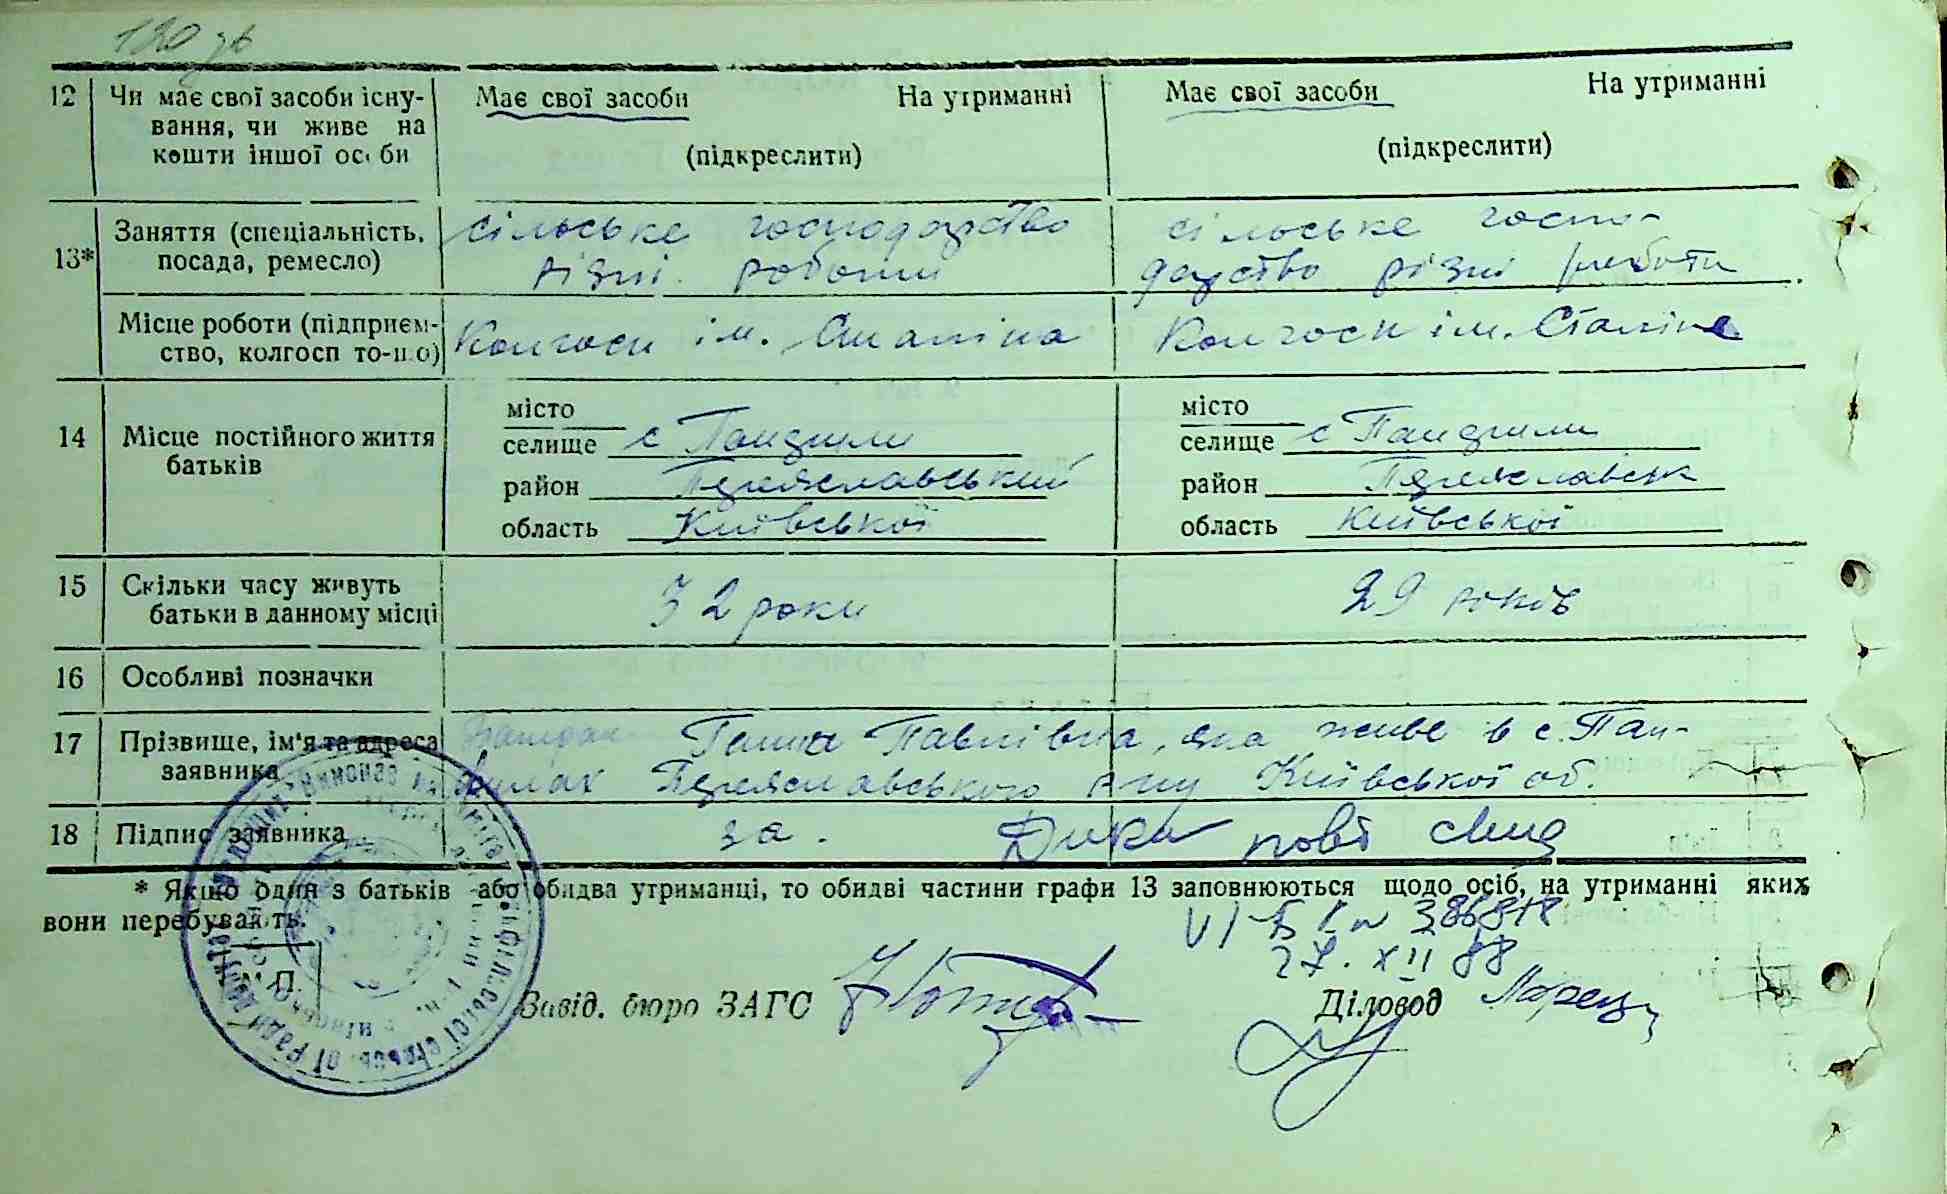 12 Чи має свої засоби існу- Має свої засоби На утриманні Має свої засоби На утриманні
вання, чи живе на
кошти іншої особи (підкреслити) (підкреслити)
13* Заняття (спеціальність, сільське господарство сільське госпо-
посада, ремесло) різні роботи дарство різні роботи
Місце роботи (підприєм- Колгосп ім. Сталіна Колгосп ім. Сталіна
ство, колгосп то-що)
місто місто
14 Місце постійного життя селище с Панфили селище с Панфили
батьків район Переяславський район Переяславськ
область Київської область Київської
15 Скільки часу живуть 32 роки 29 років
батьки в данному місці
16 Особливі позначки
17 Прізвище, ім'я та адреса Ганна Павлівна, яка живе в с. Пан-
заявника филах Переяславського р-ну Київської об.
18 Підпис заявника за.
* Якщо один з батьків або обидва утриманці, то обидві частини графи 13 заповнюються щодо осіб, на утриманні яких
вони перебувають.
27. XII 88
М.П.
Завід. бюро ЗАГС Діловод